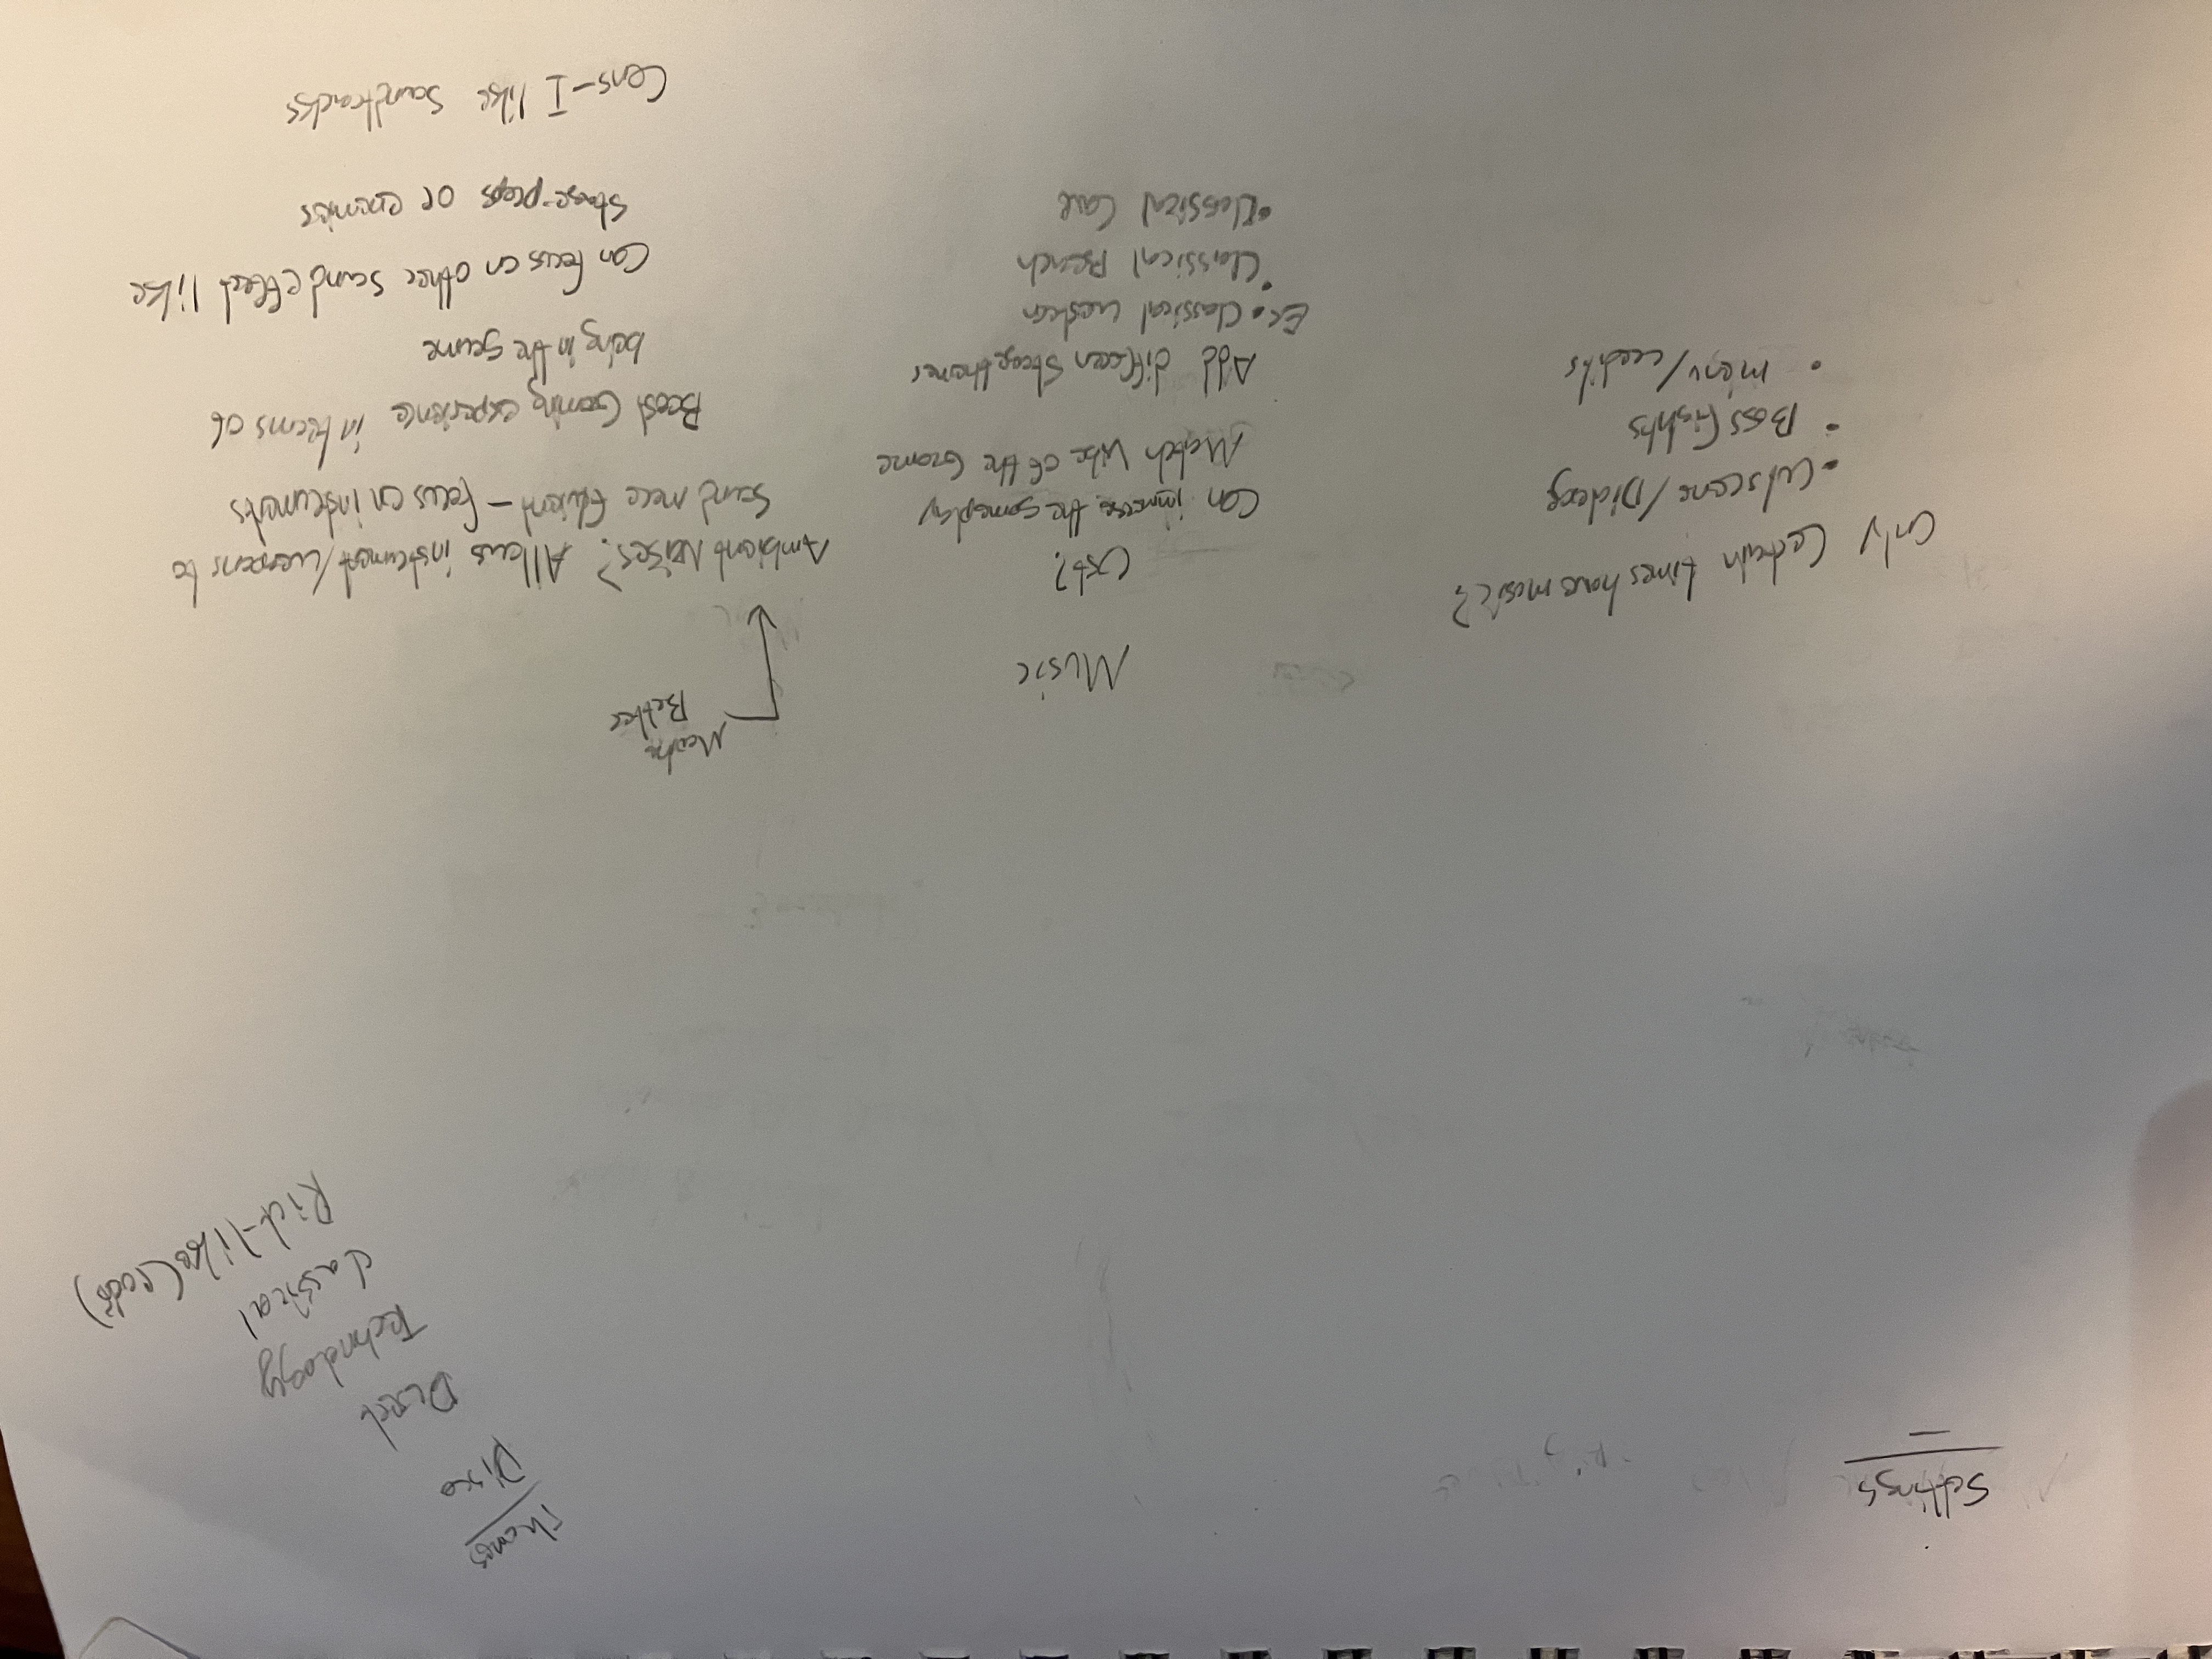 Settings
Themes
Disco
Technology
Classical
Rich-like
Maybe
Better
Music
Only Certain times have music?
• Cutscene/Dialog
• Boss fights
• menu/credits
Ost?
Can immerse the gameplay
Match Vibe of the Game
Add differen Stage themes
Ex. • Classical western
• Classical Beach
• Classical Cave
Ambient Noises? Allows instrument/weapons to
Sound more fluient – focus on instruments
Boost Gaming experience in terms of
being in the game
Can focus on other sound effect like
Stage-props or enemies
Cons – I like Soundtracks